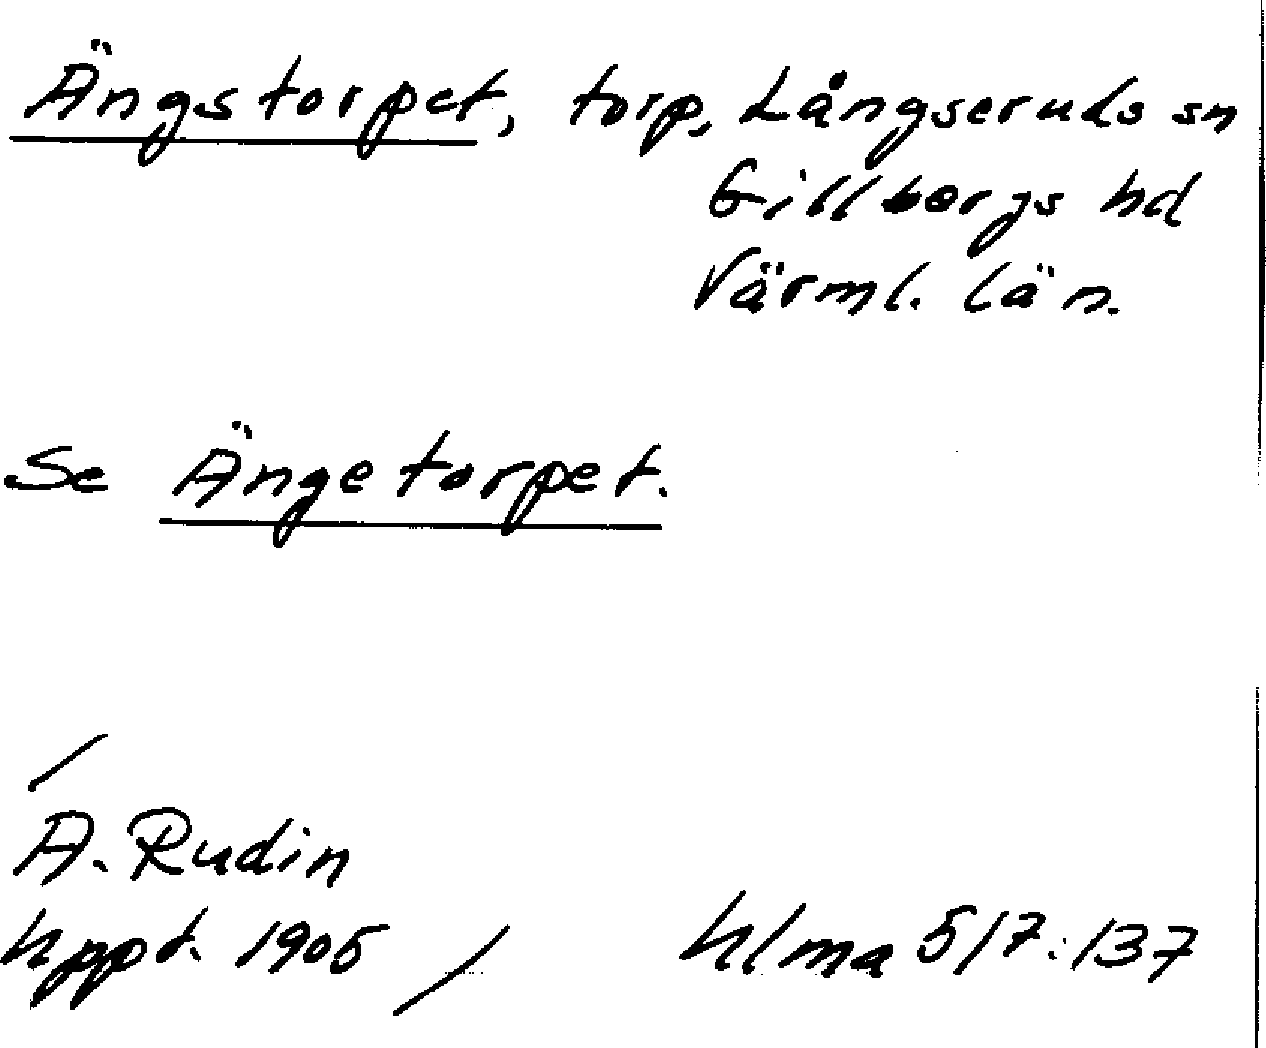 Ängstorpet, torp, Långseruds sn
Gillbergs hd
Värml. län.
Se Ängetorpet.
/
A. Rudin
uppt. 1905 /
hlma 517:137